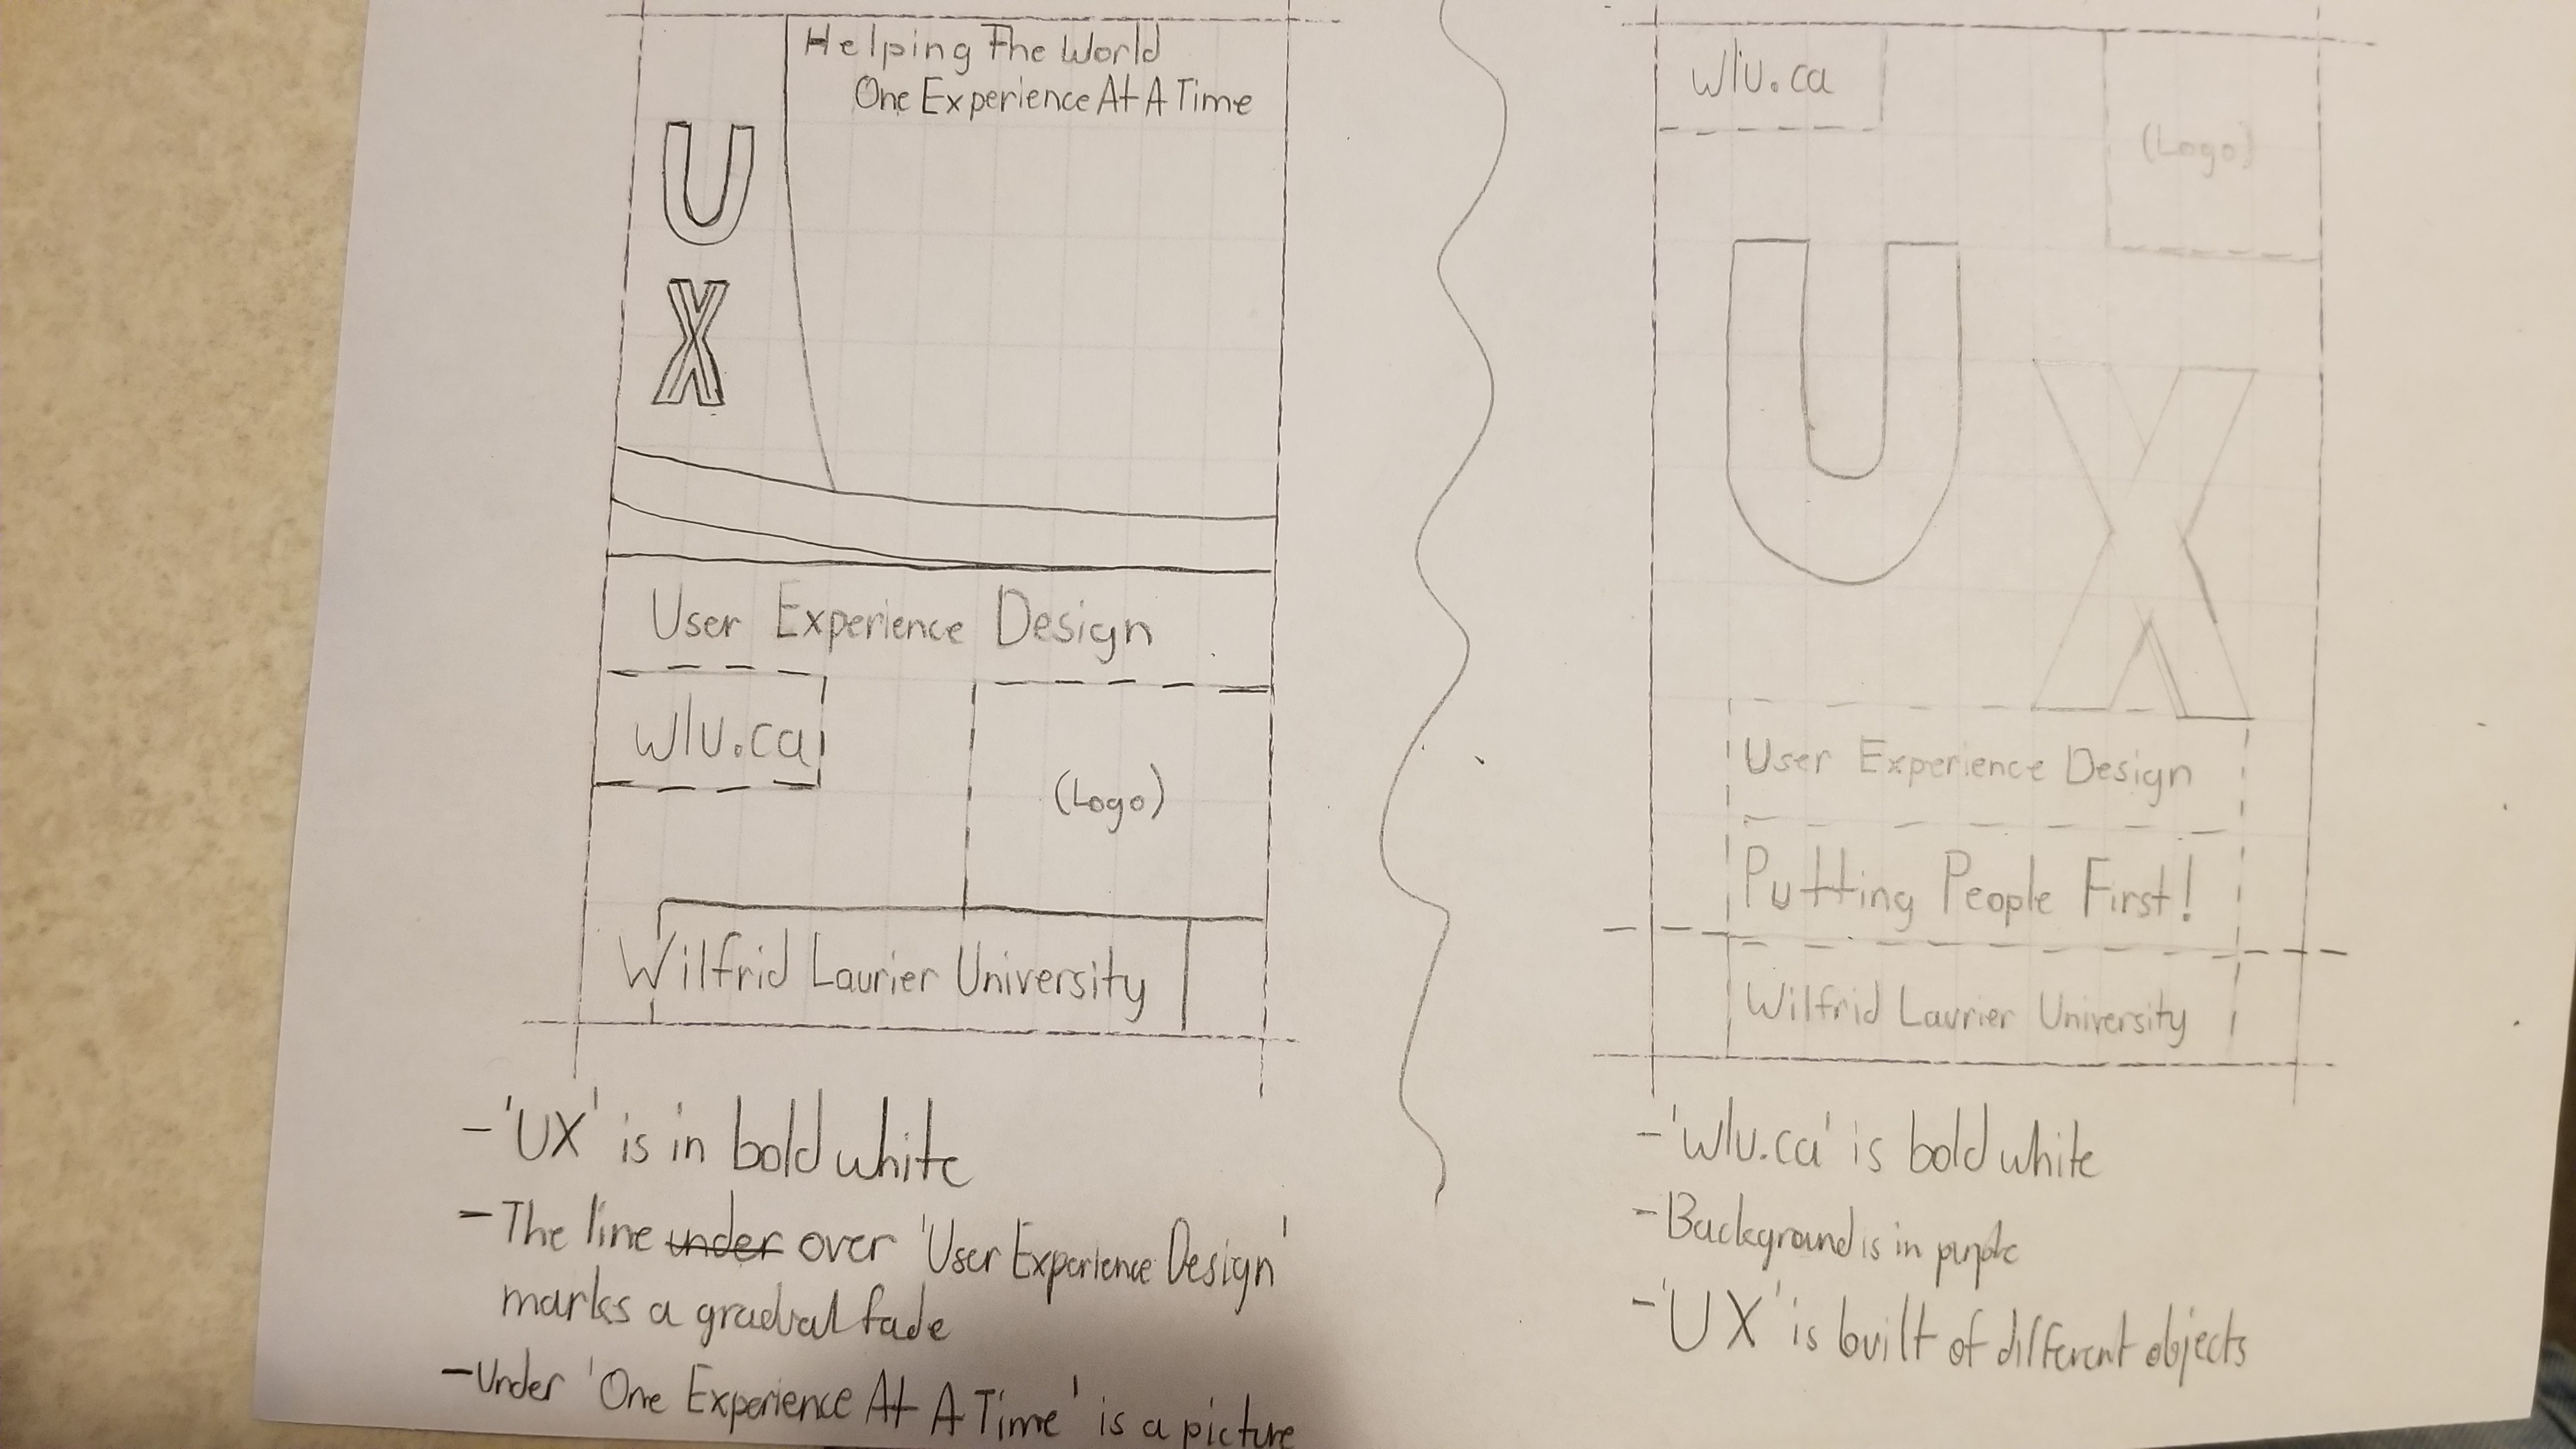 Helping The World
One Experience At A Time
U
X
User Experience Design
wlu.ca
(Logo)
Wilfrid Laurier University
- 'UX' is in bold white
- The line under over 'User Experience Design'
marks a gradual fade
- Under 'One Experience At A Time' is a picture
wlu.ca
(Logo)
U
X
User Experience Design
Putting People First!
Wilfrid Laurier University
- 'wlu.ca' is bold white
- Background is in purple
- 'UX' is built of different objects